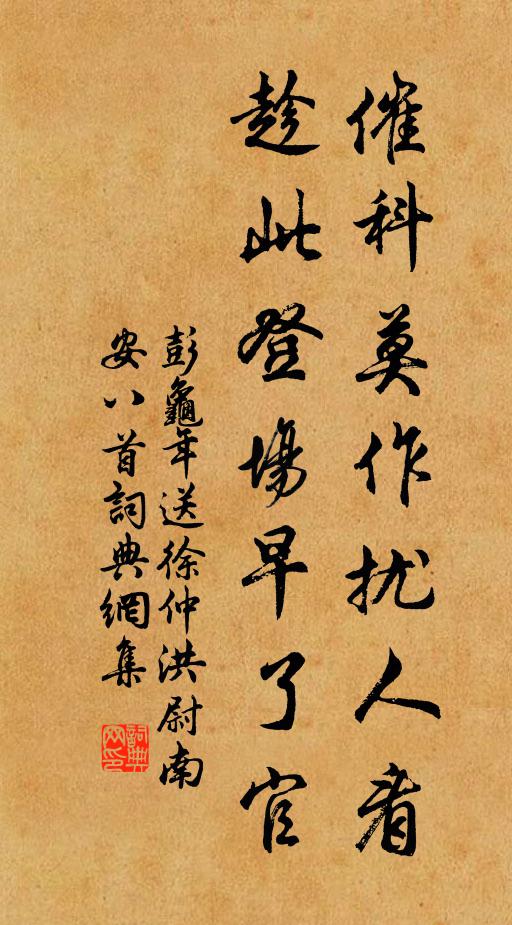 催科莫作扰人看
趁此登場早了官
彭龜年送徐仲洪尉南
安八首詞典網集
詞典网印